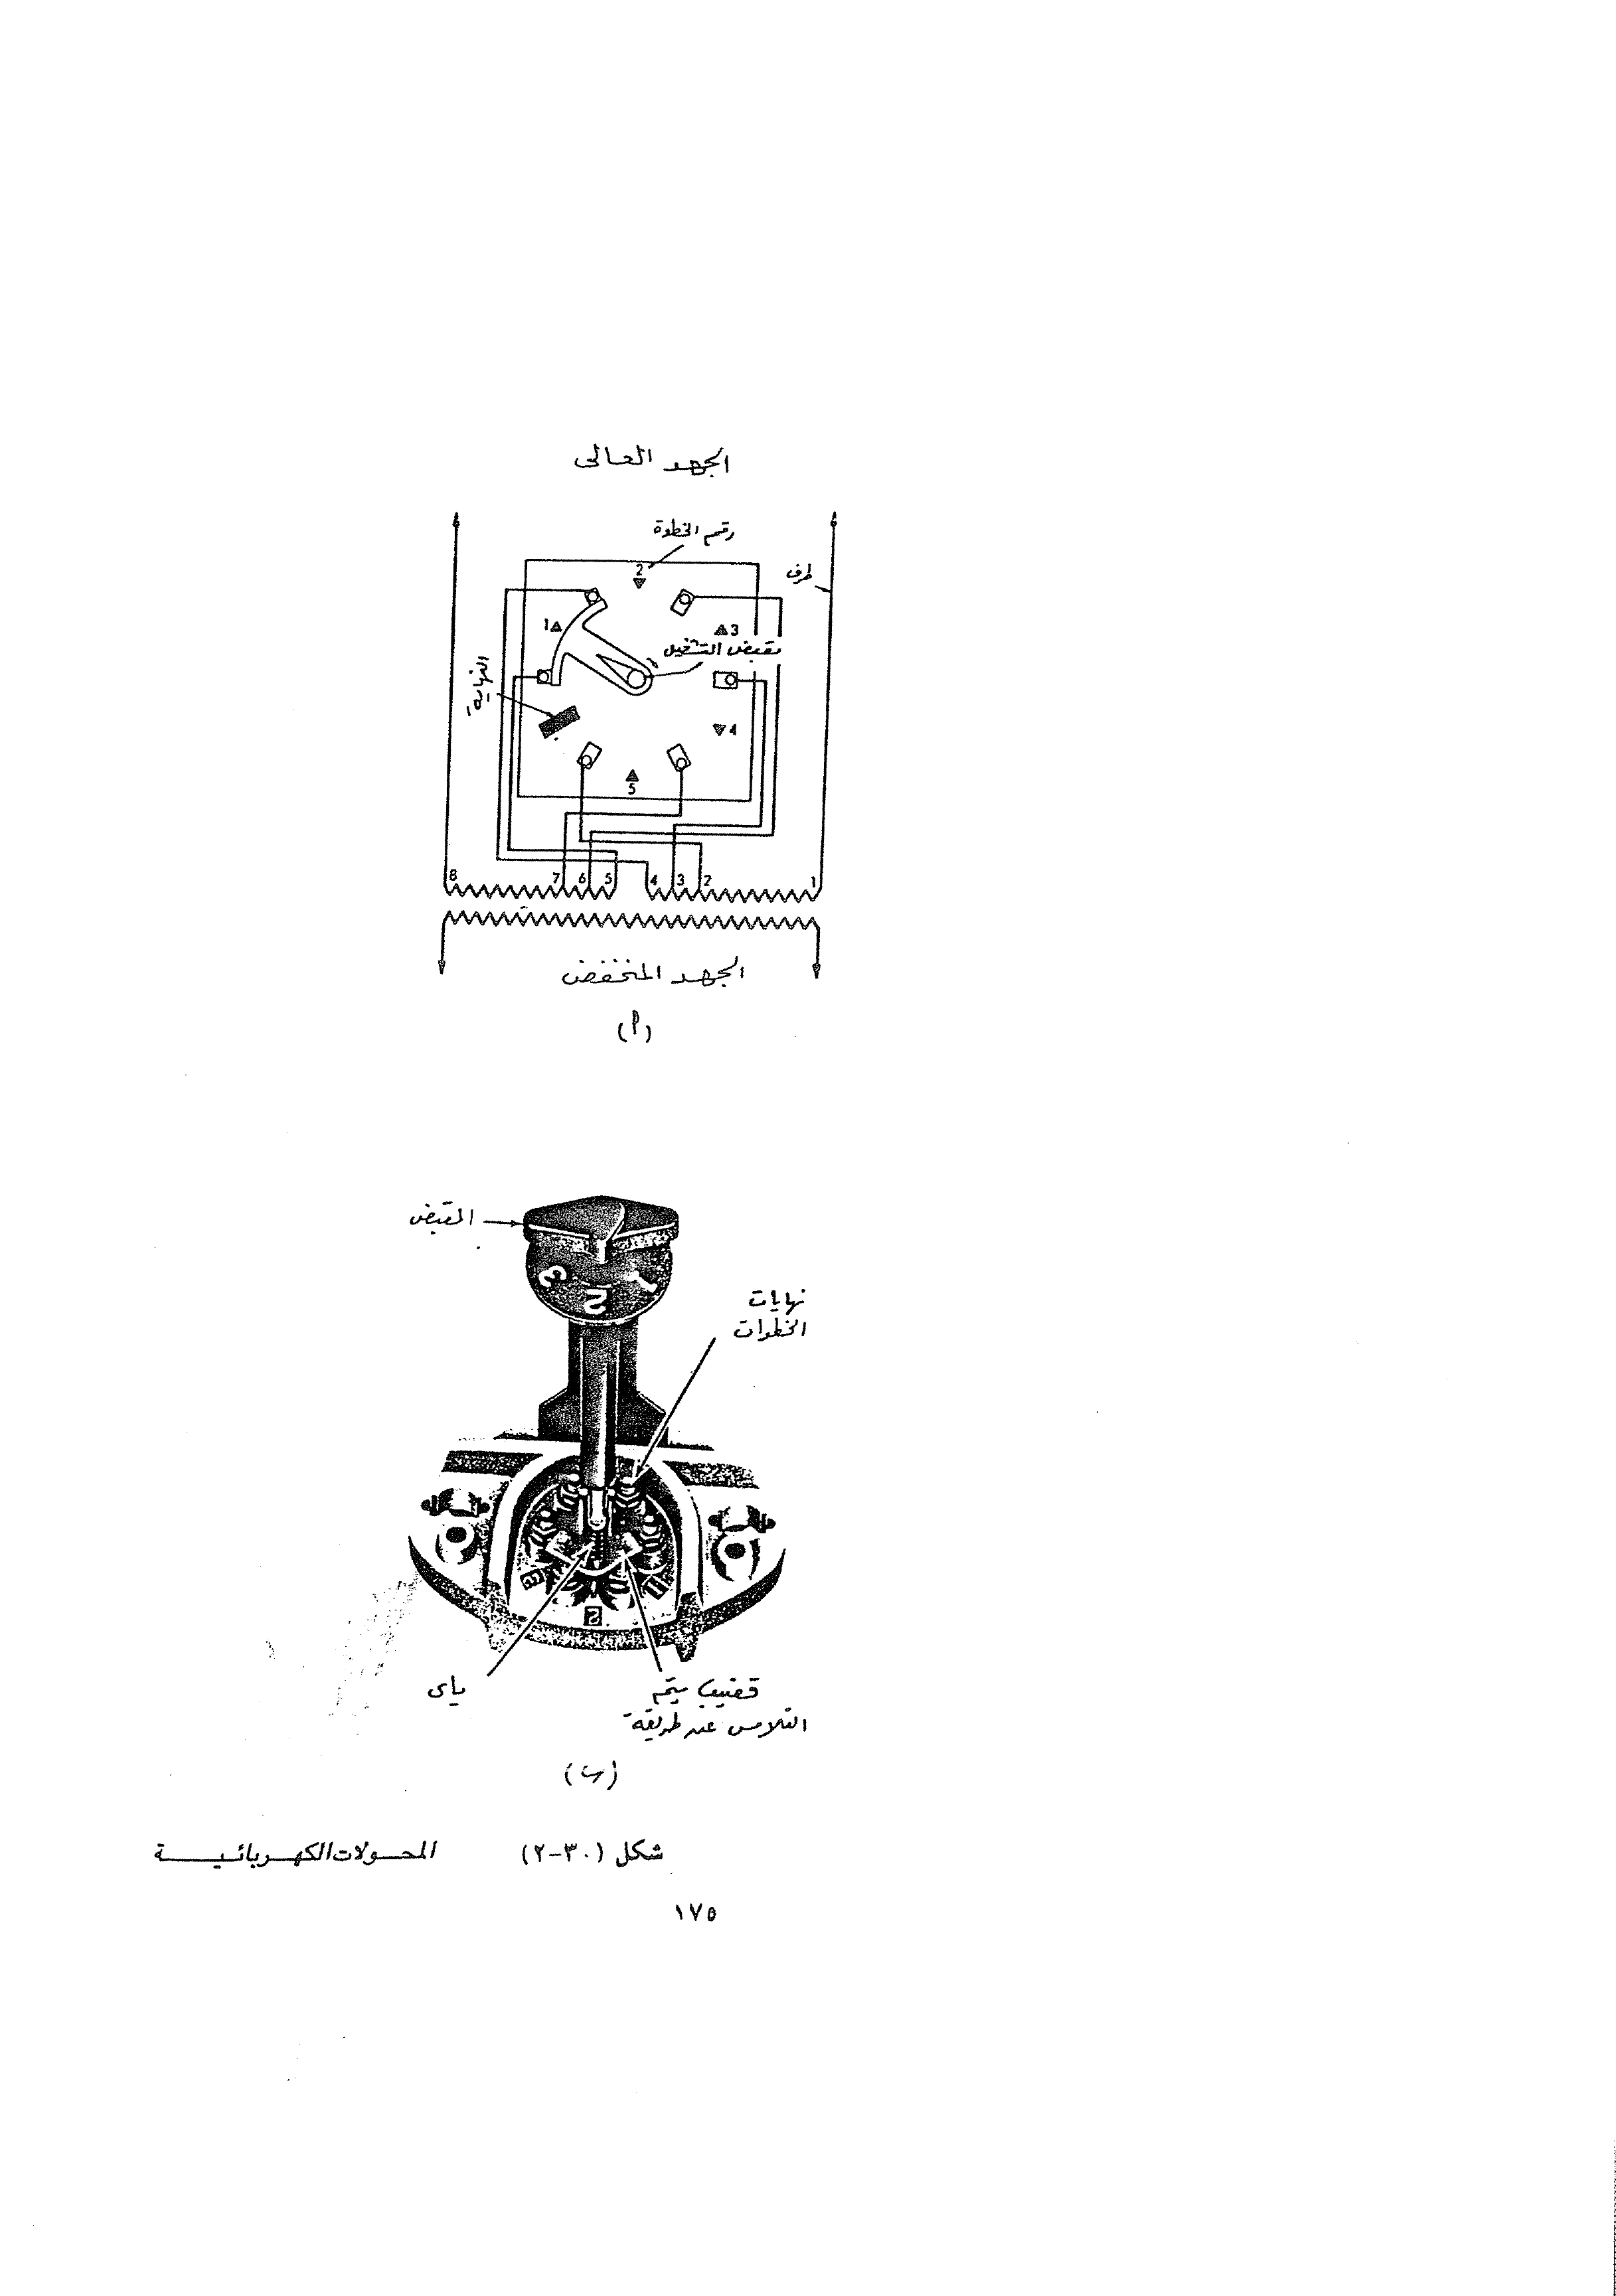 الجهد العالى
رقم الخطوة
2
طرف
1
3
مقبض التشغيل
النهاية
4
5
8 7 6 5 4 3 2 1
الجهد المنخفض
(أ)
المقبض
3 2 1
نهايات
الخطوات
3 2 1
ياى
قضيب يتم
التلامس عن طريقة
(ب)
شكل (٣٠-٢) المحولات الكهربائية
١٧٥